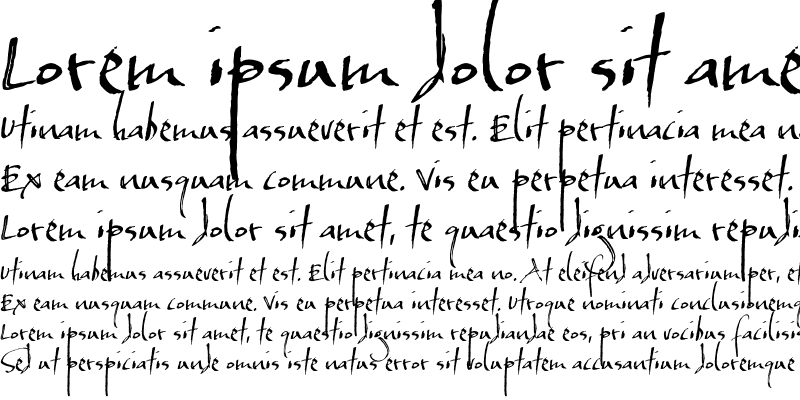 Lorem ipsum dolor sit ame
Utinam habemus assueverit et est. Elit pertinacia mea no
Ex eam nusquam commune. Vis eu perpetua interesset.
Lorem ipsum dolor sit amet, te quaestio dignissim repudi
Utinam habemus assueverit et est. Elit pertinacia mea no. At eleifend adversarium per, et
Ex eam nusquam commune. Vis eu perpetua interesset. Utroque nominati conclusionemq
Lorem ipsum dolor sit amet, te quaestio dignissim repudiandae eos, pri an vocibus facilisis
Sed ut perspiciatis unde omnis iste natus error sit voluptatem accusantium doloremque